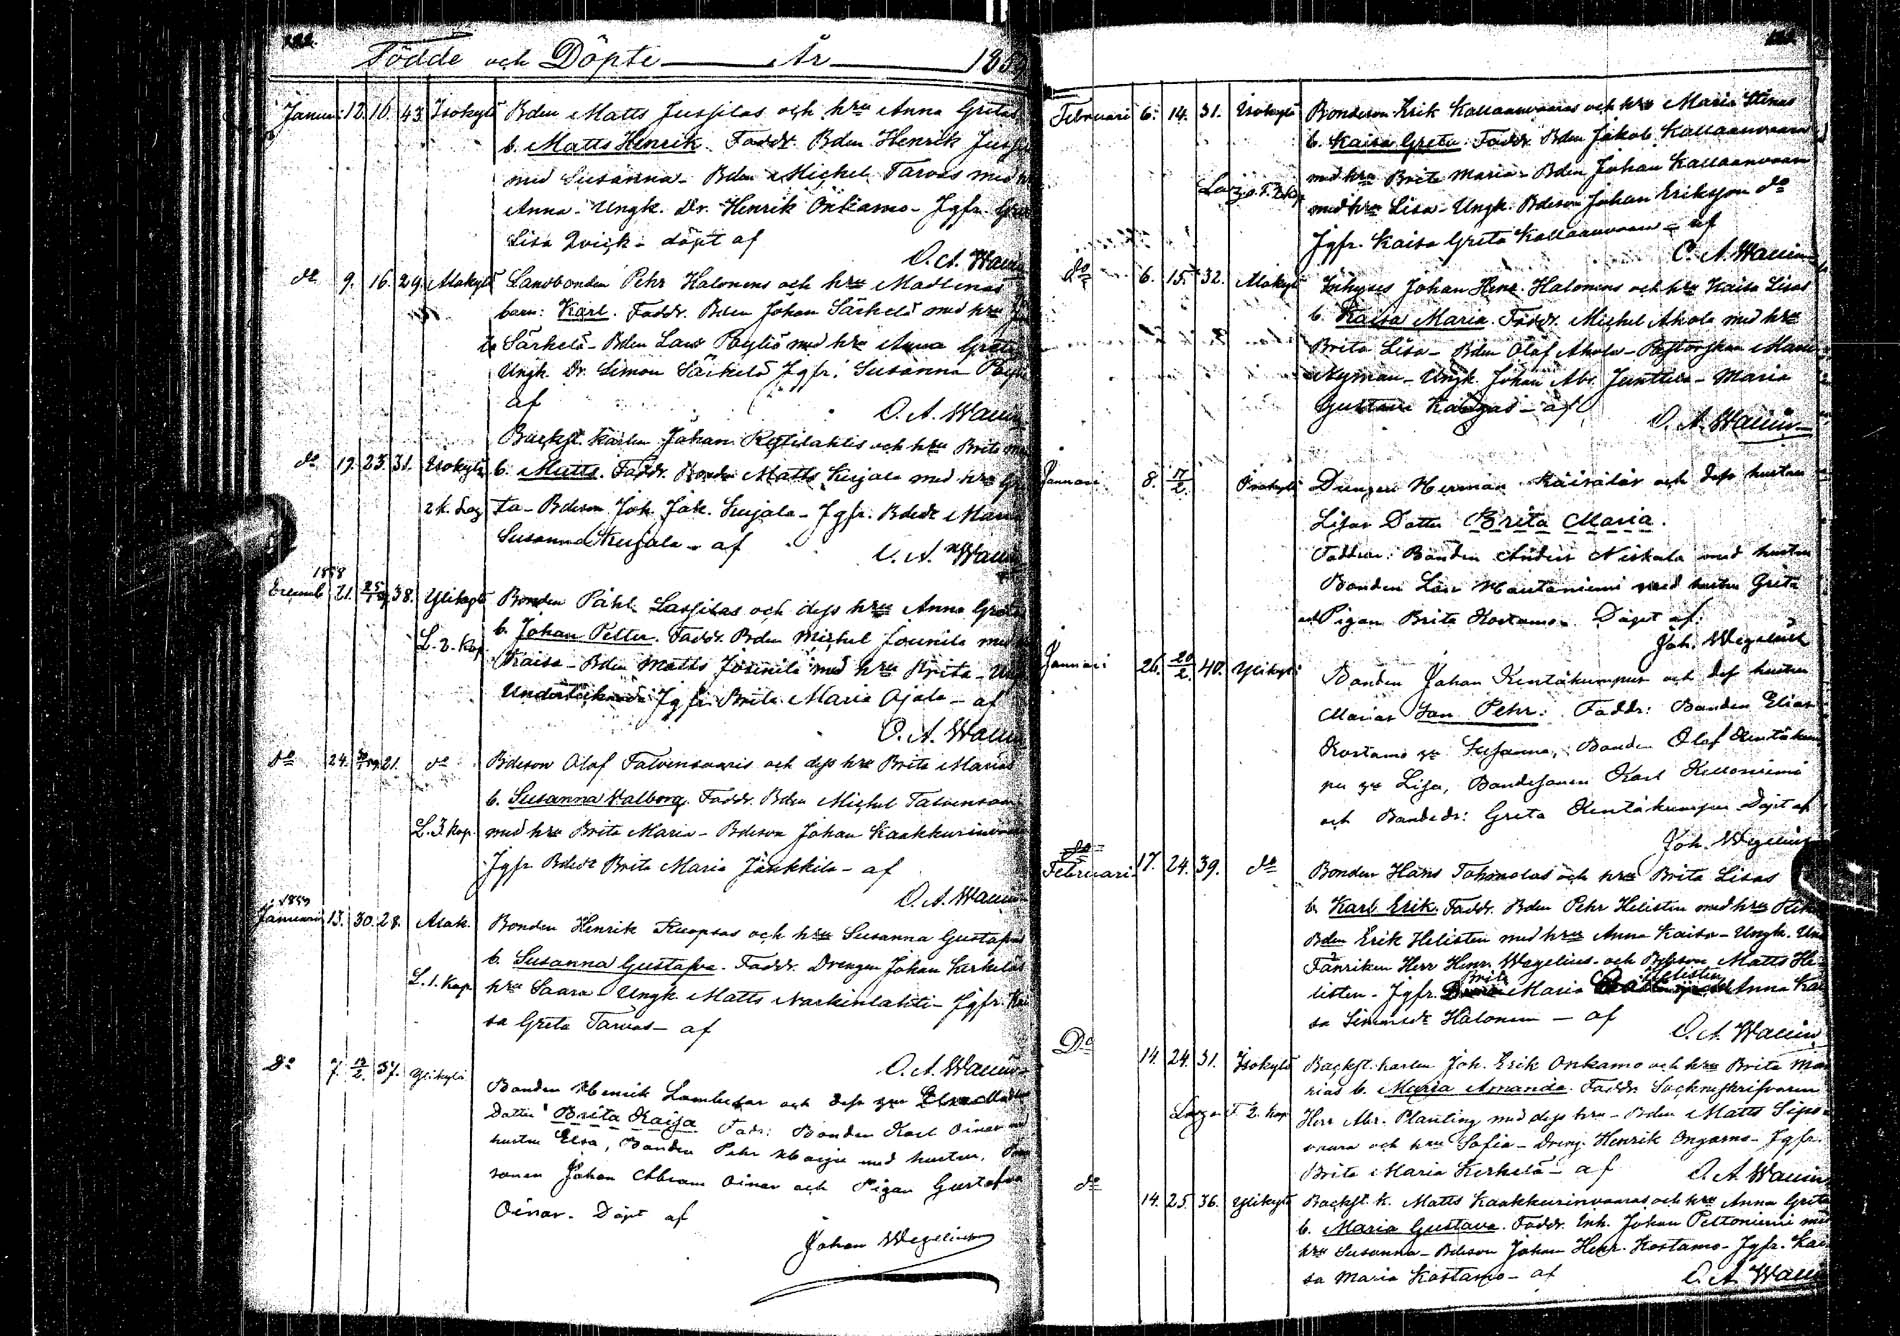 Födde och Döpte År 185
Januari 12. 16. 43. Isokylä Bden Matts Jussilas och hru Anna Gretas
b. Matts Henrik. Faddr. Bden Henrik
med Susanna - Bden Michel Tarvas med
Anna - Ungk. Dr. Henrik Onkamo - Jgfr.
Lisa Qvick - döpt af
O. A. Wallin
do 9. 16. 29. Alakylä Landbonden Pehr Halonens och hru Madlenas
barn: Karl. Faddr. Bden Johan Särkelä med hru
Särkelä - Bden Lars Pöyliö med hru Anna Greta
Ungk. Dr. Simon Särkelä Jgfr. Susanna
af
O. A. Wallin
Backst. karlen Johan och hru Brita
do 19. 23. 31. Isokylä b. Matts. Faddr. Bonden Matts Kujala med hru
2 k. Lag ta - Bdeson Joh. Jak. Kujala - Jgfr. Bdedr Maria
Susanna Kujala - af
O. A. Wallin
1858
21. 38. Ylikylä Bonden Påhl Lassilas och dess hru Anna Gretas
L. 2. Kap. b. Johan Petter. Faddr. Bden Michel Jounila med
Kaisa - Bden Matts Jounila med hru Brita -
Jgfr. Brita Maria Ojala - af
O. A. Wallin
do 24. 21. do Bdeson Olof Talvensaaris och dess hru Brita Marias
b. Susanna Valborg. Faddr. Bden Michel
L. 3. Kap. med hru Brita Maria - Bdeson Johan Kaakkurinvaara
Jgfr Bdedr Brita Maria Jänkkilä - af
O. A. Wallin
1859
Januari 13. 30. 28. Alak. Bonden Henrik Kuopsas och hru Susanna Gustafvas
b. Susanna Gustafva. Faddr. Drengen Johan Särkelä
L. 1. Kap. hru Saara - Ungk. Matts Narkinlahti - Jgfr.
sa Greta Tarvas - af
O. A. Wallin
Do 7. 13/2. 37. Ylikylä
Bonden Henrik och dess hru
Dotter Brita Kaisa Fadr: Bonden Karl Oinas med
hustru Elsa, Bonden Pehr med hustru,
sonen Johan Abram Oinas och Pigan Gustafva
Oinas. Döpt af
Johan Wegelius
Februari 6. 14. 31. Isokylä Bondeson Erik Kallaanvaaras och hru Maria Stinas
b. Kaisa Greta. Faddr. Bden Jakob Kallaanvaara
med hru Brita Maria - Bden Johan Kallaanvaara
med hru Lisa - Ungk. Bdeson Johan Eriksson do
Jgfr. Kaisa Greta Kallaanvaara - af
O. A. Wallin
do 6. 15. 32. Alakylä Inhyses Johan Henr. Halonens och hru Kaisa Lisas
b. Kaisa Maria. Faddr. Michel Ahola med hru
Brita Lisa - Bden Olof Ahola - Maria
Nyman - Ungk. Johan Abr. Junttila - Maria
Gustava Kangas - af
O. A. Wallin
Januari 8. 17/2. Drengen Herman och dess hustru
Lisas Dotter Brita Maria.
Faddrar: Bonden Anders Niskala med hustru
Bonden Lars Mautaniemi med hustru Greta
Pigan Brita Kostamo. Döpt af:
Joh. Wegelius
Januari 26. 20/2. 40. Ylikylä
Bonden Johan Kentäkumpus och dess hustru
Marias Son Pehr. Faddr: Bonden Elias
Kostamo hu Susanna, Bonden Olof Kentäkum
pu hu Lisa, Bondesonen Karl Kelloniemi
och Bondedr: Greta Kentäkumpu Döpt af
Joh. Wegelius
do
Februari 17. 24. 39. do Bonden Hans Tohmolas och hru Brita Lisas
b. Karl Erik. Faddr. Bden Pehr Helisten med hru
Bden Erik Helisten med hru Anna Kaisa - Ungk.
Fänriken Herr Henr. Wegelius - och Bdeson Matts He-
listen - Jgfr. Brita Maria Helisten Anna Kai
sa Simonsdr Halonen - af
O. A. Wallin
Do
14. 24. 31. Isokylä Backst. karlen Joh. Erik Onkamo och hru Brita Ma
rias b. Maria Amanda. Faddr. Sockneskrifvaren
2. Kap Herr Abr. Planting med dess hru - Bden Matts Sipo-
vaara och hru Sofia - Dreng. Henrik Ongamo - Jgfr.
Brita Maria Kerkelä - af O. A. Wallin
do
14. 25. 36. Ylikylä Backst. k. Matts Kaakkurinvaaras och hru Anna Gretas
b. Maria Gustava. Faddr. Inh. Johan Peltoniemi med
hru Susanna - Bdeson Johan Henr. Kostamo - Jgfr. Kai
sa Maria Kostamo - af
O. A. Wallin